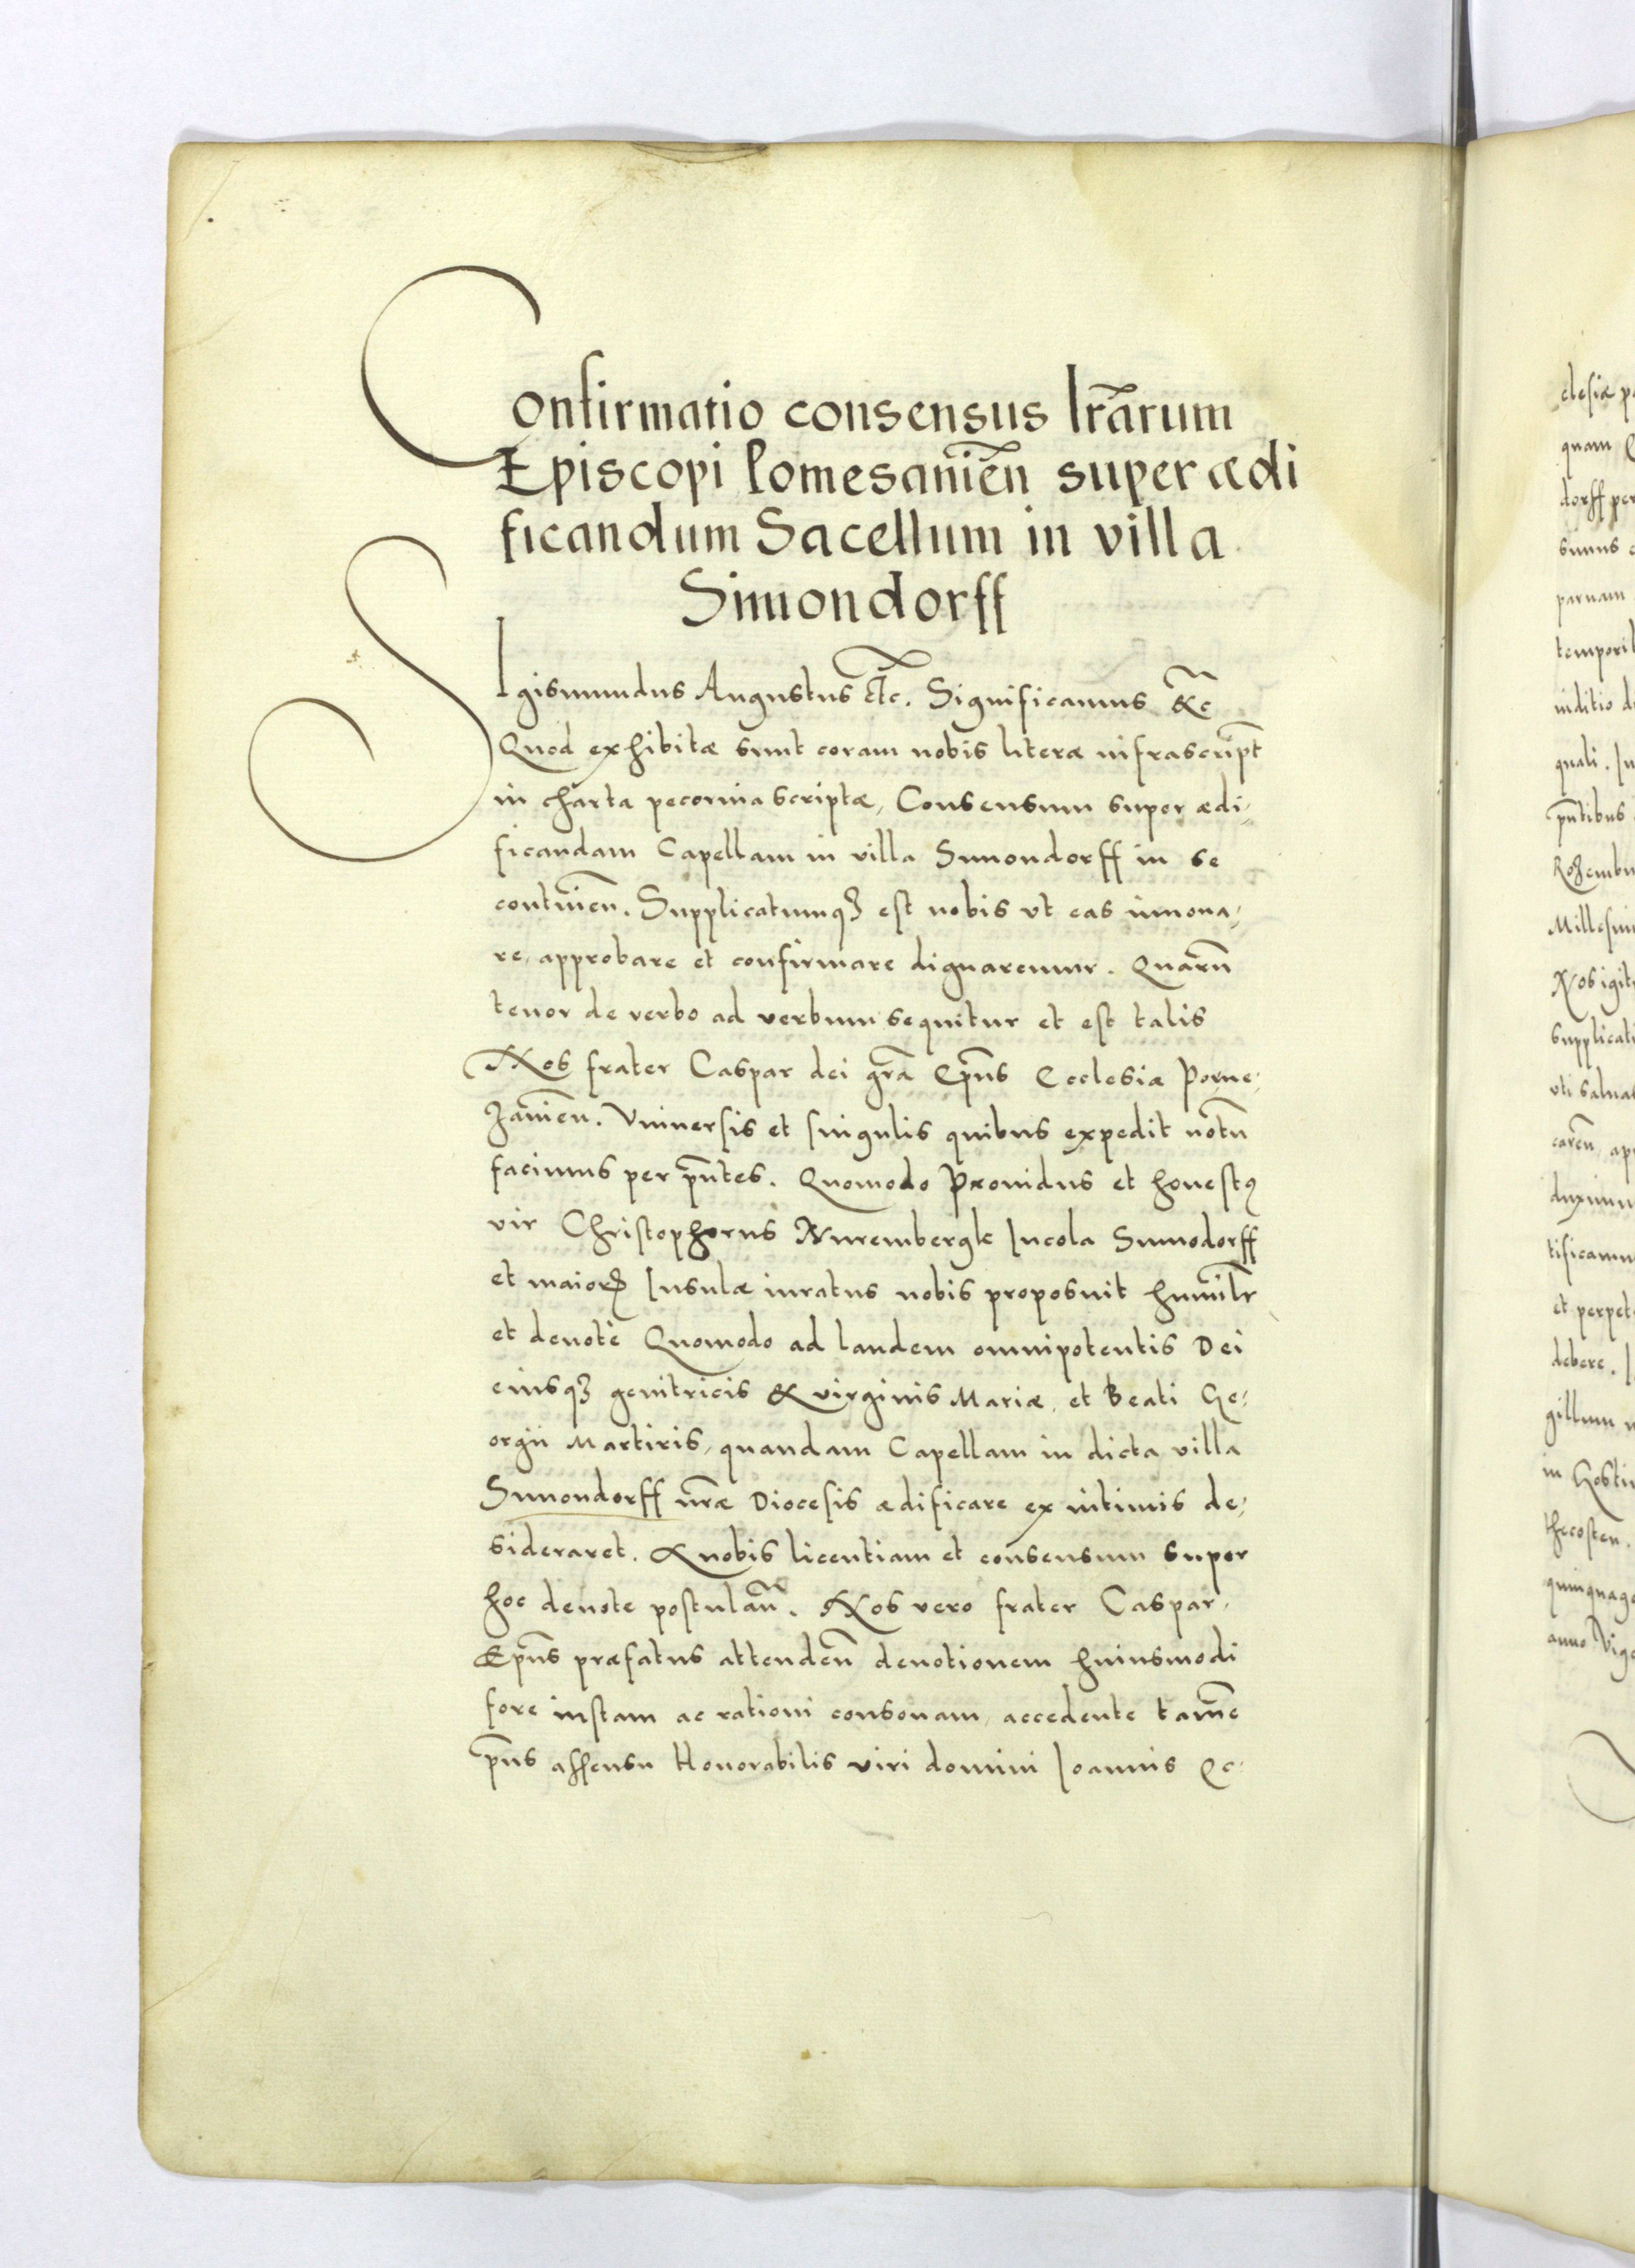 Confirmatio consensus lr̃arum
Episcopi Pomesanieñ super ædi
ficandum Sacellum in villa
Simondorff
SIgismundus Augustus etc. Significamus &c̃
Quod exhibitæ sunt coram nobis literæ infrascript̃
in charta pecorina scriptæ, Consensum super ædi-
ficandam Capellam in villa Simondorff in se
continen̄. Supplicatumqȝ est nobis vt eas innoua-
re, approbare et confirmare dignaremur. Quarū
tenor de verbo ad verbum sequitur et est talis
Nos frater Caspar dei gr̃a Ep̃us Ecclesiæ Pome-
zanien̄. Vniuersis et singulis quibus expedit notū
facimus per p̃ntes. Quomodo Prouidus et honestꝯ
vir Christophorus Nurembergk Incola Simodorff
et maioꝝ Insulæ iuratus nobis proposuit humilr̃
et deuotè Quomodo ad laudem omnipotentis Dei
eiusqȝ genitricis & virginis Mariæ, et Beati Ge-
orgii Martiris, quandam Capellam in dicta villa
Simondorff nr̃æ Diocesis ædificare ex intimis de-
sideraret. & nobis licentiam et consensum super
hoc deuote postulan̄. Nos vero frater Caspar,
Ep̃us præfatus attenden̄ deuotionem huiusmodi
fore iustam ac rationi consonam, accedente tamē
p̃us assensu Honorabilis viri domini Ioannis Ec-
clesiæ p
quam
dorff per
sumus
paruam
temporib
inditio d
quali. In
p̃ntibus
Millesim
Nos igit
supplicati
vti saluas
caren̄, app
duximu
tificamu
et perpet
debere. I
gillum n
in
thecosten.
quinquage
anno Vige